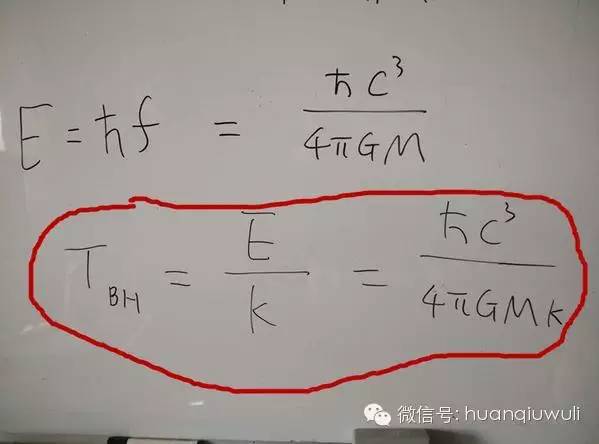 E = ħf = ħc³ / 4πGM
T_BH = E / k = ħc³ / 4πGMk
微信号: huanqiuwuli